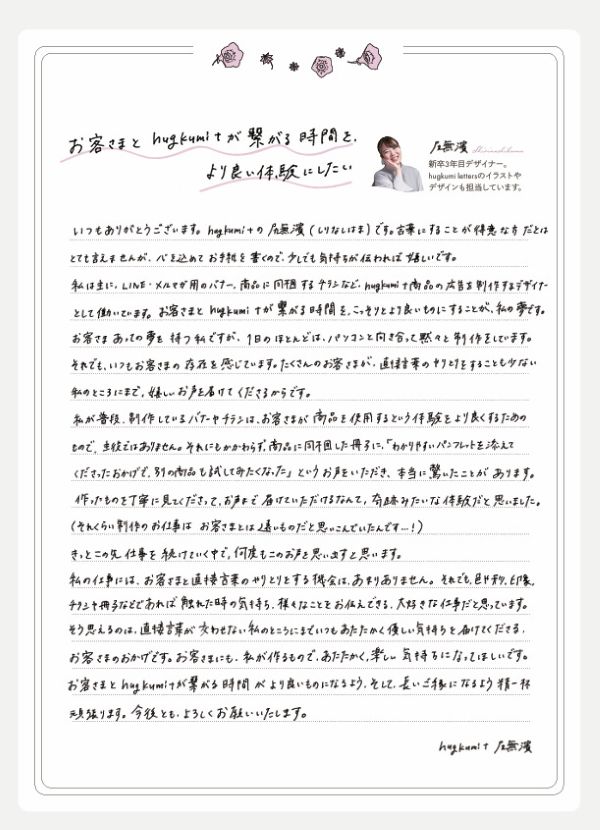 お客さまと hugkumi+が 繋がる 時間を、
より良い体験にしたい
尻無濱
新卒3年目デザイナー。
hugkumi lettersのイラストや
デザインも担当しています。
いつもありがとうございます。hugkumi+の 尻無濱(しりなしはま)です。言葉にすることが得意な方だとは
とても言えませんが、心を込めてお手紙を書くので、少しでも気持ちが伝われば嬉しいです。
私は主に、LINE・メルマガ用のバナー、商品に同梱するチラシなど、hugkumi+商品の広告を制作するデザイナー
として働いています。お客さまと hugkumi+が繋がる時間を、こっそりとより良いものにすることが、私の夢です。
お客さまあっての夢を持つ私ですが、1日のほとんどは、パソコンと向き合って黙々と制作をしています。
それでも、いつもお客さまの存在を感じています。たくさんのお客さまが、直接言葉のやりとりをすることも少ない
私のところにまで、嬉しいお声を届けてくださるからです。
私が普段、制作しているバナーやチラシは、お客さまが商品を使用するという体験をより良くするための
もので、主役ではありません。それにもかかわらず、商品に同梱した冊子に、「わかりやすいパンフレットを添えて
くださったおかげで、別の商品も試してみたくなった」というお声をいただき、本当に驚いたことがあります。
作ったものを丁寧に見てくださって、お声まで届けていただけるなんて、奇跡みたいな体験だと思いました。
(それくらい制作のお仕事は お客さまとは遠いものだと思いこんでいたんです…!)
きっとこの先、仕事を続けていく中で、何度もこのお声を思い出すと思います。
私の仕事には、お客さまと直接言葉のやりとりをする機会は、あまりありません。それでも、色や形、印象、
チラシや冊子などであれば触れた時の気持ち、様々なことをお伝えできる、大好きな仕事だと思っています。
そう思えるのは、直接言葉が交わせない私のところにまでいつもあたたかく優しい気持ちを届けてくださる、
お客さまのおかげです。お客さまにも、私が作るもので、あたたかく、楽しい気持ちになってほしいです。
お客さまと hugkumi+が繋がる時間がより良いものになるよう、そして、長いご縁になるよう精一杯
頑張ります。今後とも、よろしくお願いいたします。
hugkumi+ 尻無濱